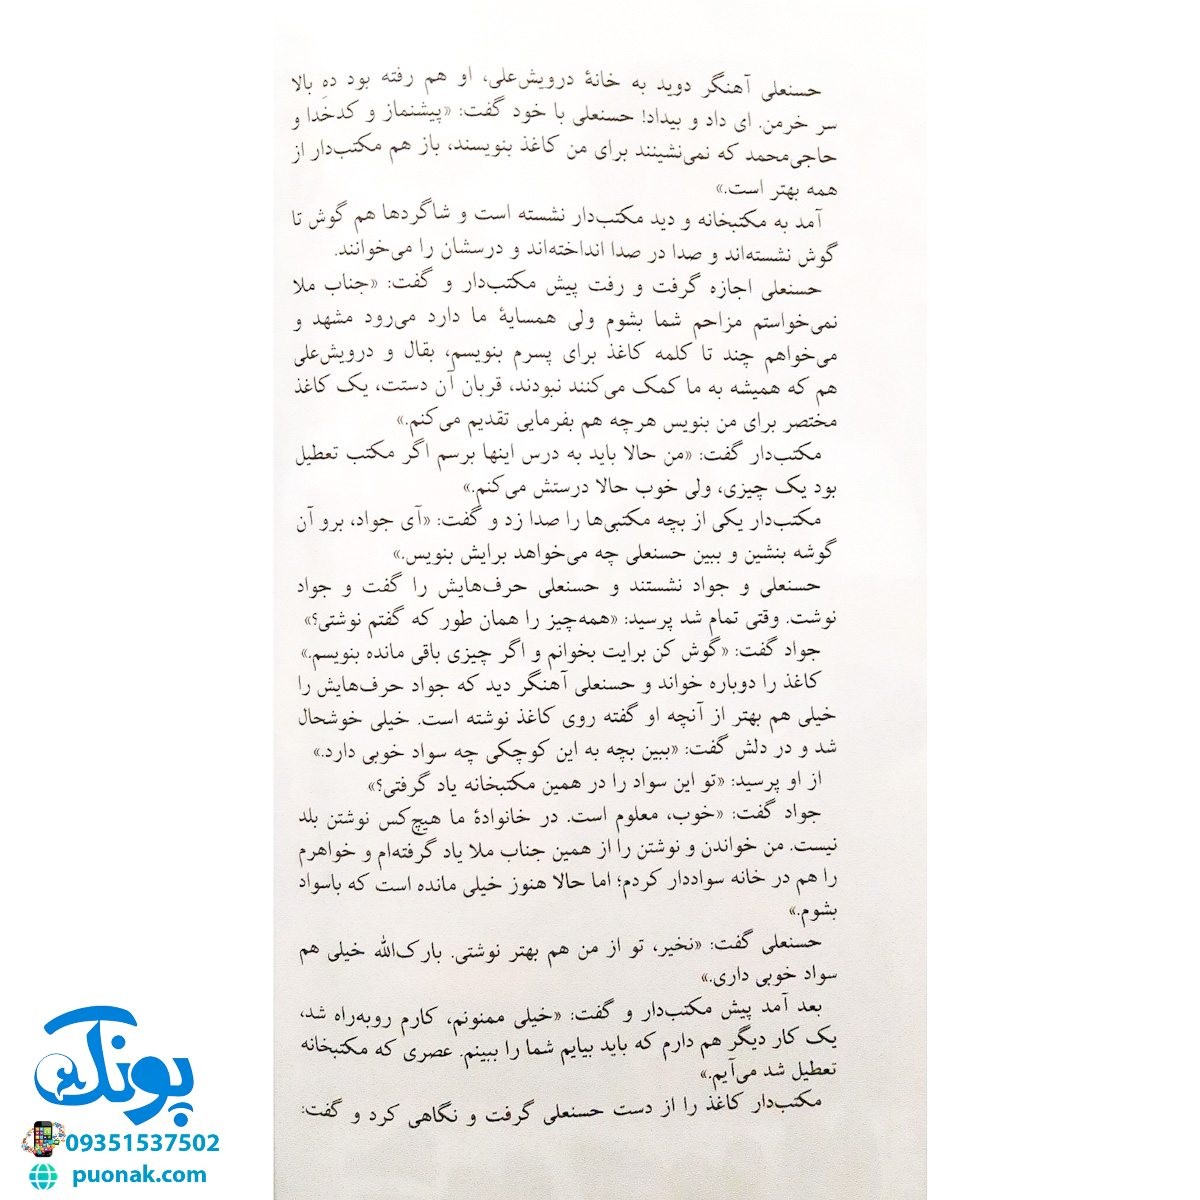 حسنعلی آهنگر دوید به خانهٔ درویش‌علی، او هم رفته بود دهِ بالا
سر خرمن. ای داد و بیداد! حسنعلی با خود گفت: «پیشنماز و کدخدا و
حاجی‌محمد که نمی‌نشینند برای من کاغذ بنویسند، باز هم مکتب‌دار از
همه بهتر است.»
آمد به مکتبخانه و دید مکتب‌دار نشسته است و شاگردها هم گوش تا
گوش نشسته‌اند و صدا در صدا انداخته‌اند و درسشان را می‌خوانند.
حسنعلی اجازه گرفت و رفت پیش مکتب‌دار و گفت: «جناب ملا
نمی‌خواستم مزاحم شما بشوم ولی همسایهٔ ما دارد می‌رود مشهد و
می‌خواهم چند تا کلمه کاغذ برای پسرم بنویسم، بقال و درویش‌علی
هم که همیشه به ما کمک می‌کنند نبودند، قربان آن دستت، یک کاغذ
مختصر برای من بنویس هرچه هم بفرمایی تقدیم می‌کنم.»
مکتب‌دار گفت: «من حالا باید به درس اینها برسم اگر مکتب تعطیل
بود یک چیزی، ولی خوب حالا درستش می‌کنم.»
مکتب‌دار یکی از بچه مکتبی‌ها را صدا زد و گفت: «آی جواد، برو آن
گوشه بنشین و ببین حسنعلی چه می‌خواهد برایش بنویس.»
حسنعلی و جواد نشستند و حسنعلی حرف‌هایش را گفت و جواد
نوشت. وقتی تمام شد پرسید: «همه‌چیز را همان طور که گفتم نوشتی؟»
جواد گفت: «گوش کن برایت بخوانم و اگر چیزی باقی مانده بنویسم.»
کاغذ را دوباره خواند و حسنعلی آهنگر دید که جواد حرف‌هایش را
خیلی هم بهتر از آنچه او گفته روی کاغذ نوشته است. خیلی خوشحال
شد و در دلش گفت: «ببین بچه به این کوچکی چه سواد خوبی دارد.»
از او پرسید: «تو این سواد را در همین مکتبخانه یاد گرفتی؟»
جواد گفت: «خوب، معلوم است. در خانوادهٔ ما هیچ‌کس نوشتن بلد
نیست. من خواندن و نوشتن را از همین جناب ملا یاد گرفته‌ام و خواهرم
را هم در خانه سواددار کردم؛ اما حالا هنوز خیلی مانده است که باسواد
بشوم.»
حسنعلی گفت: «نخیر، تو از من هم بهتر نوشتی. بارک‌الله خیلی هم
سواد خوبی داری.»
بعد آمد پیش مکتب‌دار و گفت: «خیلی ممنونم، کارم روبه‌راه شد،
یک کار دیگر هم دارم که باید بیایم شما را ببینم. عصری که مکتبخانه
تعطیل شد می‌آیم.»
مکتب‌دار کاغذ را از دست حسنعلی گرفت و نگاهی کرد و گفت:
پونک
09351537502
puonak.com